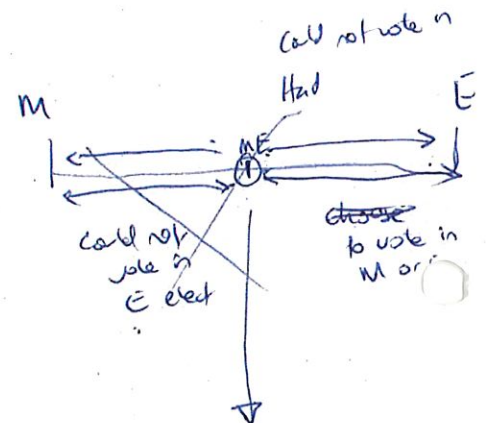 Could not vote in
M
E
ME
could not
vote in
E elect
choose
to vote in
M or